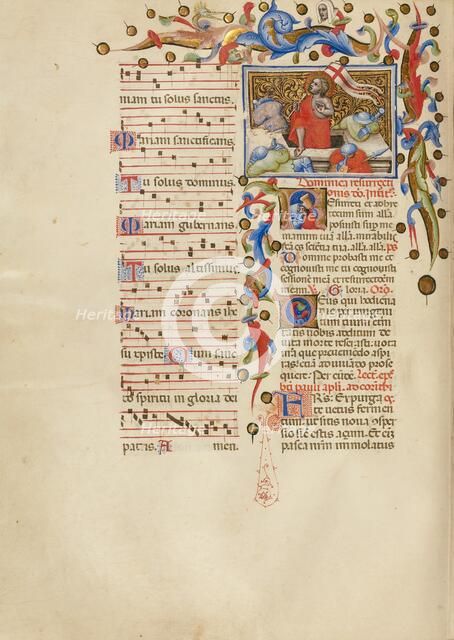 mam tu solus sanctus.
Mariam sanctificans.
Tu solus dominus.
Mariam gubernans.
Tu solus altissimus.
Mariam coronans ihe
su christe. Cum sanc
to spiritu in gloria dei
patris. A men.
Dominica resurrecti
onis
Resurrexi et adhuc
tecum sum alla.
posuisti super me
manum tuam alla. mirabilis
facta est scientia tua alla. alla. ps.
Domine probasti me et
cognovisti me tu cognovisti
sessionem meam et resurrectio
nem meam. Gloria. Oro.
Deus qui hodierna
die per unigeni
tum tuum eterni
tatis nobis aditum de
victa morte reserasti. vota
nostra que preveniendo aspi
ras. etiam adiuvando prose
quere. Per eundem.
beati pauli apli. ad corinth
FRS. Expurga
te vetus fermen
tum. ut sitis nova consper
sio sicut estis açimi. Et enim
pasca nostrum immolatus
Heritage
Heritage
Heritage
Heritage
Heritage